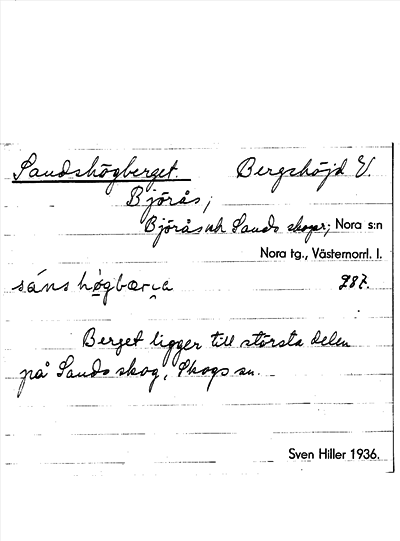 Sandshögberget. Bergshöjd V.
Björås;
Björås och Sands skogar; Nora s:n
Nora tg., Västernorrl. l.
sáns hø̀gbærıa 287.
Berget ligger till största delen
på Sands skog, Skogs sn.
Sven Hiller 1936.